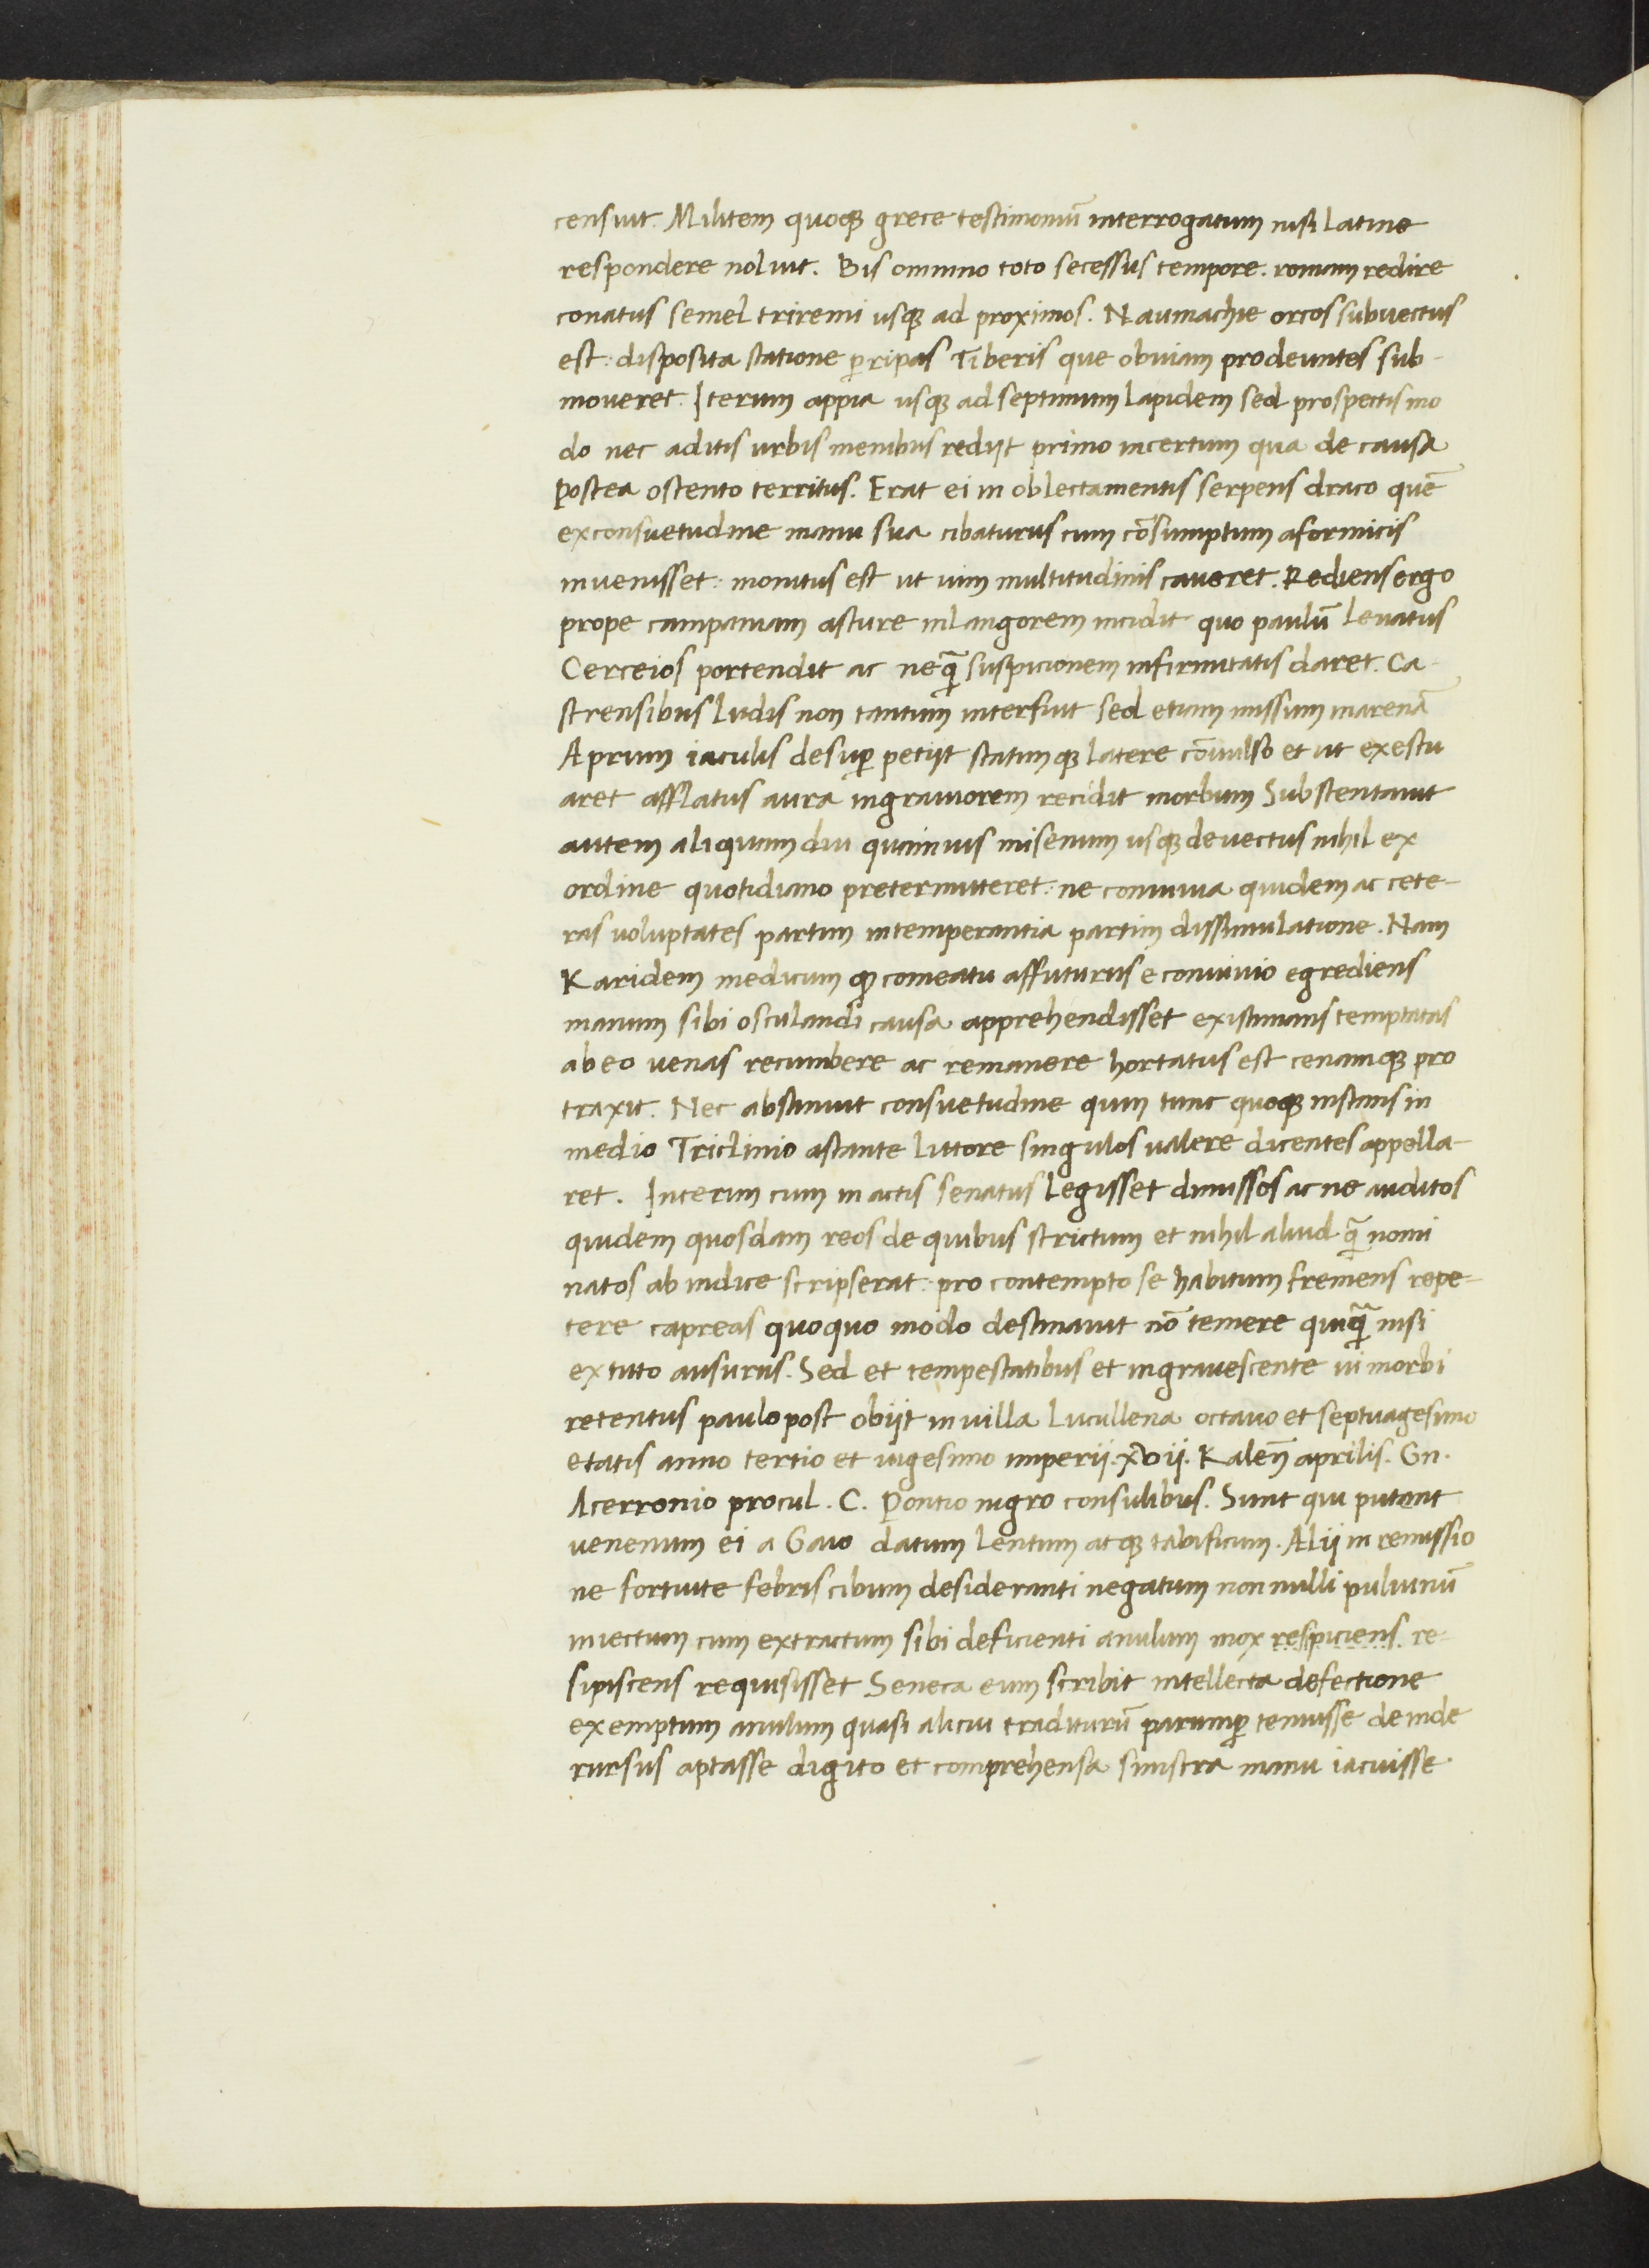 censuit. Militem quoqꝫ grece testimoniū interrogatum nisi latine
respondere noluit. Bis omnino toto secessus tempore. romam redire
conatus semel triremi usqꝫ ad proximos. Naumachie ortos subuectus
est: disposita statione ꝑ ripas Tiberis que obuiam prodeuntes sub-
moueret. Iterum appia usqꝫ ad septimum lapidem sed prospectis mo
do nec aditis urbis menibus rediit primo incertum qua de causa
postea ostento territus. Erat ei in oblectamentis serpens draco quē
ex consuetudine manu sua cibaturus cum cōsumptum a formicis
inuenisset: monitus est ut uim multitudinis caueret. Rediens ergo
prope campaniam asture in langorem incidit quo paulū leuatus
Cerceios portendit ac neq̄ suspicionem infirmitatis daret. Ca-
strensibus ludis non tantum interfuit sed etiam missum in arenā
Aprum iaculis desuꝑ petiit statimqꝫ latere cōuulso et ut exestu
aret afflatus aura in grauiorem recidit morbum Substentauit
autem aliquamdiu quamuis misenum usqꝫ deuectus nihil ex
ordine quotidiano pretermitteret: ne conuiuia quidem ac cete-
ras uoluptates partim intemperantia partim dissimulatione. Nam
Karidem medicum qꝫ comeatu affuturus e conuiuio egrediens
manum sibi osculandi causa apprehendisset existimans temptatas
ab eo uenas recumbere ac remanere hortatus est cenamqꝫ pro
traxit. Nec abstinuit consuetudine quin tunc quoqꝫ instans in
medio Triclinio astante littore singulos ualere dicentes appella-
ret. Interim cum in actis senatus legisset dimissos ac ne auditos
quidem quosdam reos de quibus strictum et nihil aliud q̄ nomi
natos ab indice scripserat: pro contempto se habitum fremens repe-
tere capreas quoquo modo destinauit nō temere quiq̄ nisi
ex tuto ausurus. Sed et tempestatibus et ingrauescente ui morbi
retentus paulo post obiit in uilla Lucullena octauo et septuagesimo
etatis anno tertio et uigesimo imperii. xvii. Kaleñ aprilis. Gn.
Acerronio procul. C. Pontio nigro consulibus. Sunt qui putent
uenenum ei a Gaio datum lentum atqꝫ tabificum. Alii in remissio
ne fortuite febris cibum desideranti negatum non nulli puluinū
iniectum cum extractum sibi deficienti anulum mox respiciens. re-
sipiscens requisisset Seneca eum scribit intellecta defectione
exemptum anulum quasi alicui traditurū parumꝑ tenuisse deinde
rursus aptasse digito et comprehensa sinistra manu iacuisse